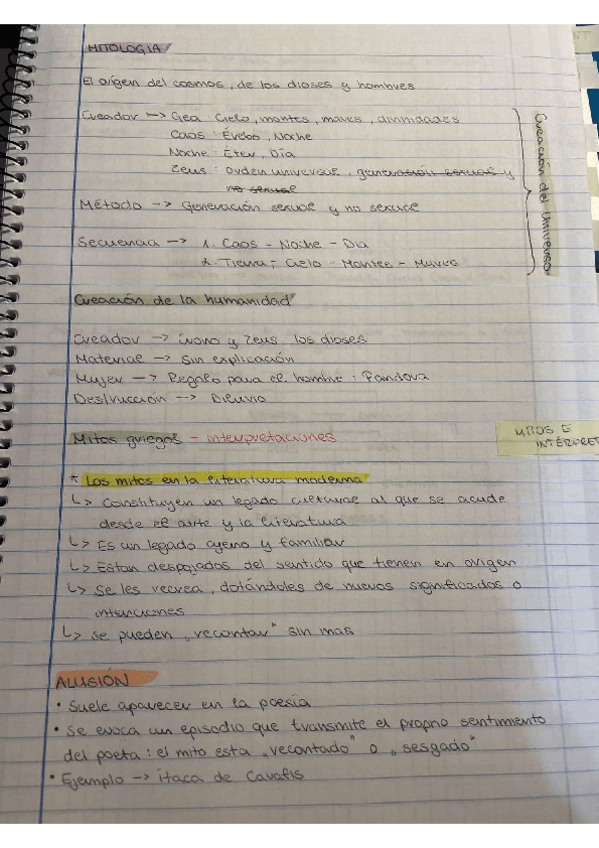 MITOLOGIA
El origen del cosmos, de los dioses y hombres
Creador -> Gea Cielo, montes, mares, divinidades
Caos: Érebo, Noche
Noche: Éter, Día
Zeus: orden universal, generación sexual y
no sexual
Método -> Generación sexual y no sexual
Secuencia -> 1. Caos - Noche - Dia
2. Tierra; Cielo - Montes - Mares
Creación del universo
Creación de la humanidad
Creador -> Crono y Zeus los dioses
Material -> Sin explicación
Mujer -> Regalo para el hombre: Pandora
Destrucción --> Diluvio
Mitos griegos - interpretaciones
MITOS E
INTERPRET
* Los mitos en la literatura moderna
↳ Constituyen un legado cultural al que se acude
desde el arte y la literatura
↳ Es un legado ajeno y familiar
↳ Estan despojados del sentido que tienen en origen
↳ Se les recrea, dotándoles de nuevos significados o
intenciones
↳ Se pueden „recontar“ sin mas
ALUSIÓN
• Suele aparecer en la poesía
• Se evoca un episodio que transmite el propio sentimiento
del poeta: el mito esta „recontado“ o „sesgado“
• Ejemplo -> Ítaca de Cavafis